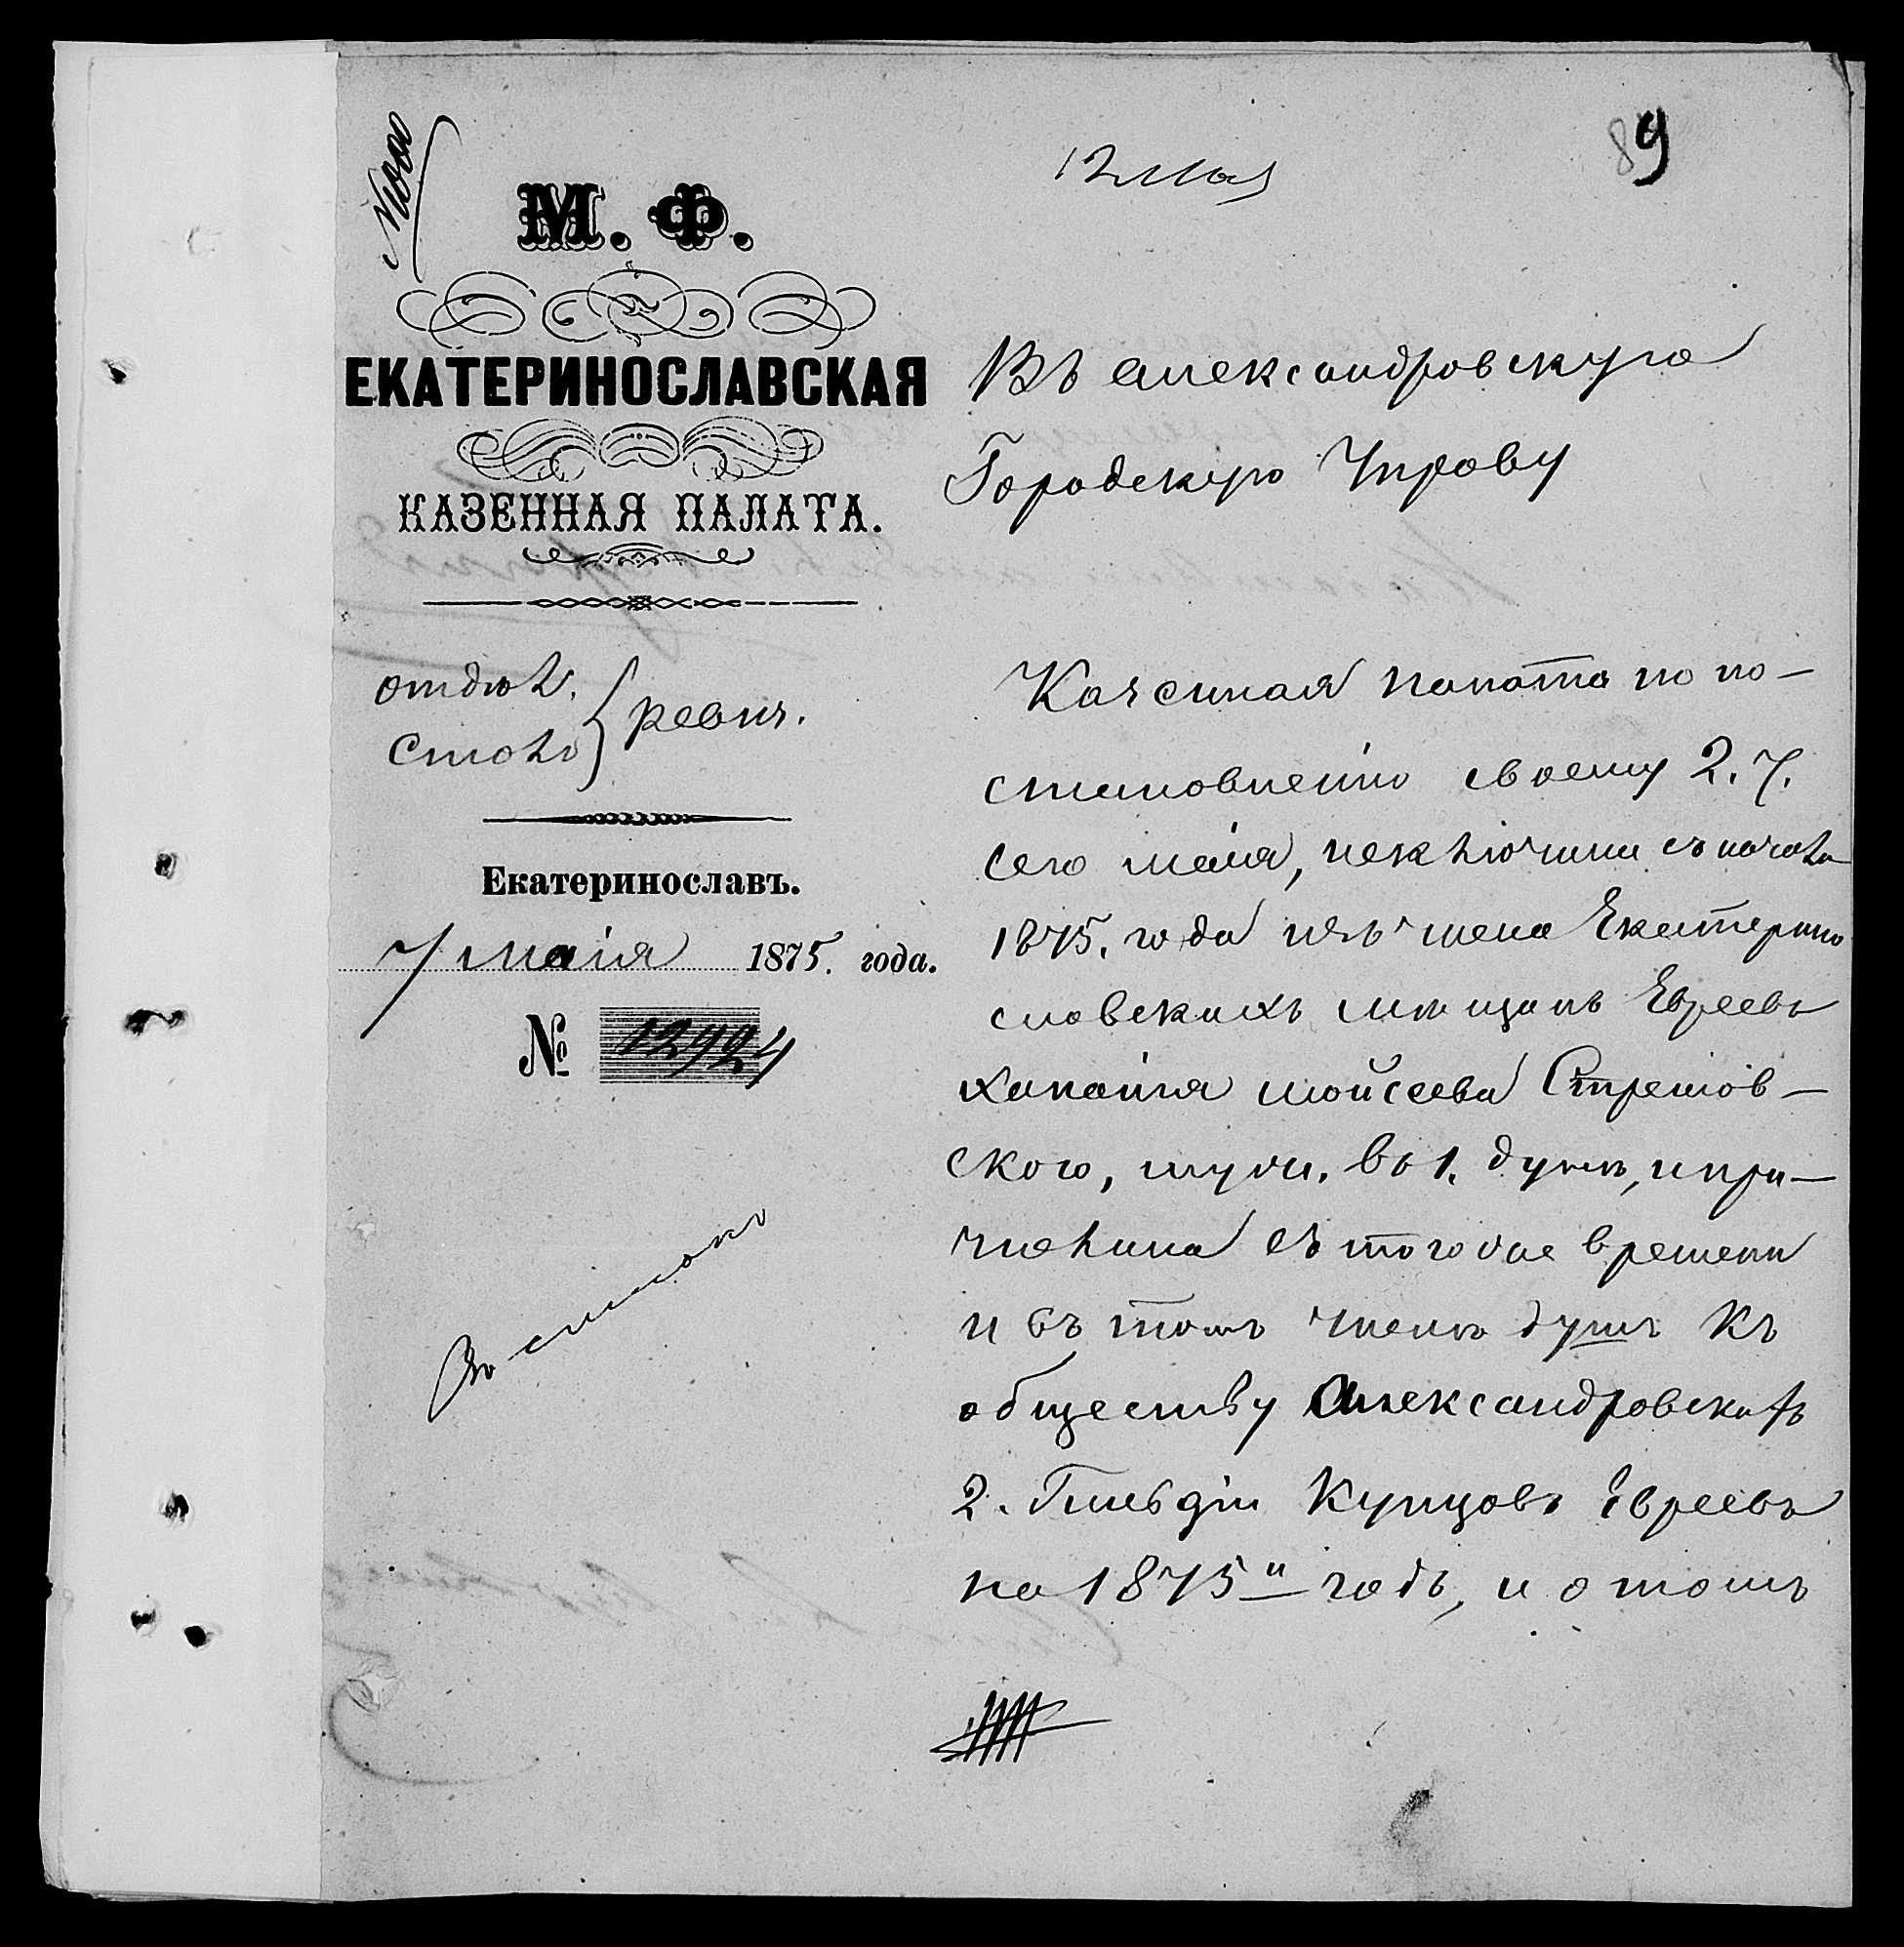 12 мая
89
М. Ф.
ЕКАТЕРИНОСЛАВСКАЯ
КАЗЕННАЯ ПАЛАТА.
отдѣл.
Столъ
ревиз.
Екатеринославъ.
7 маія 1875. года.
№ 12924
Въ Александровскую
Городскую Управу
Казенная палата по по-
становленію своему 2. 7.
сего маія, исключила съ начала
1875. года изъ числа Екатерино
славскихъ мѣщанъ Евреевъ
Моисеева
ского, муж. въ 1. душѣ, и при-
числила съ того же времени
и въ томъ числѣ душъ къ
обществу Александровскихъ
2. Гильдіи Купцовъ Евреевъ
на 1875й годъ, и о томъ